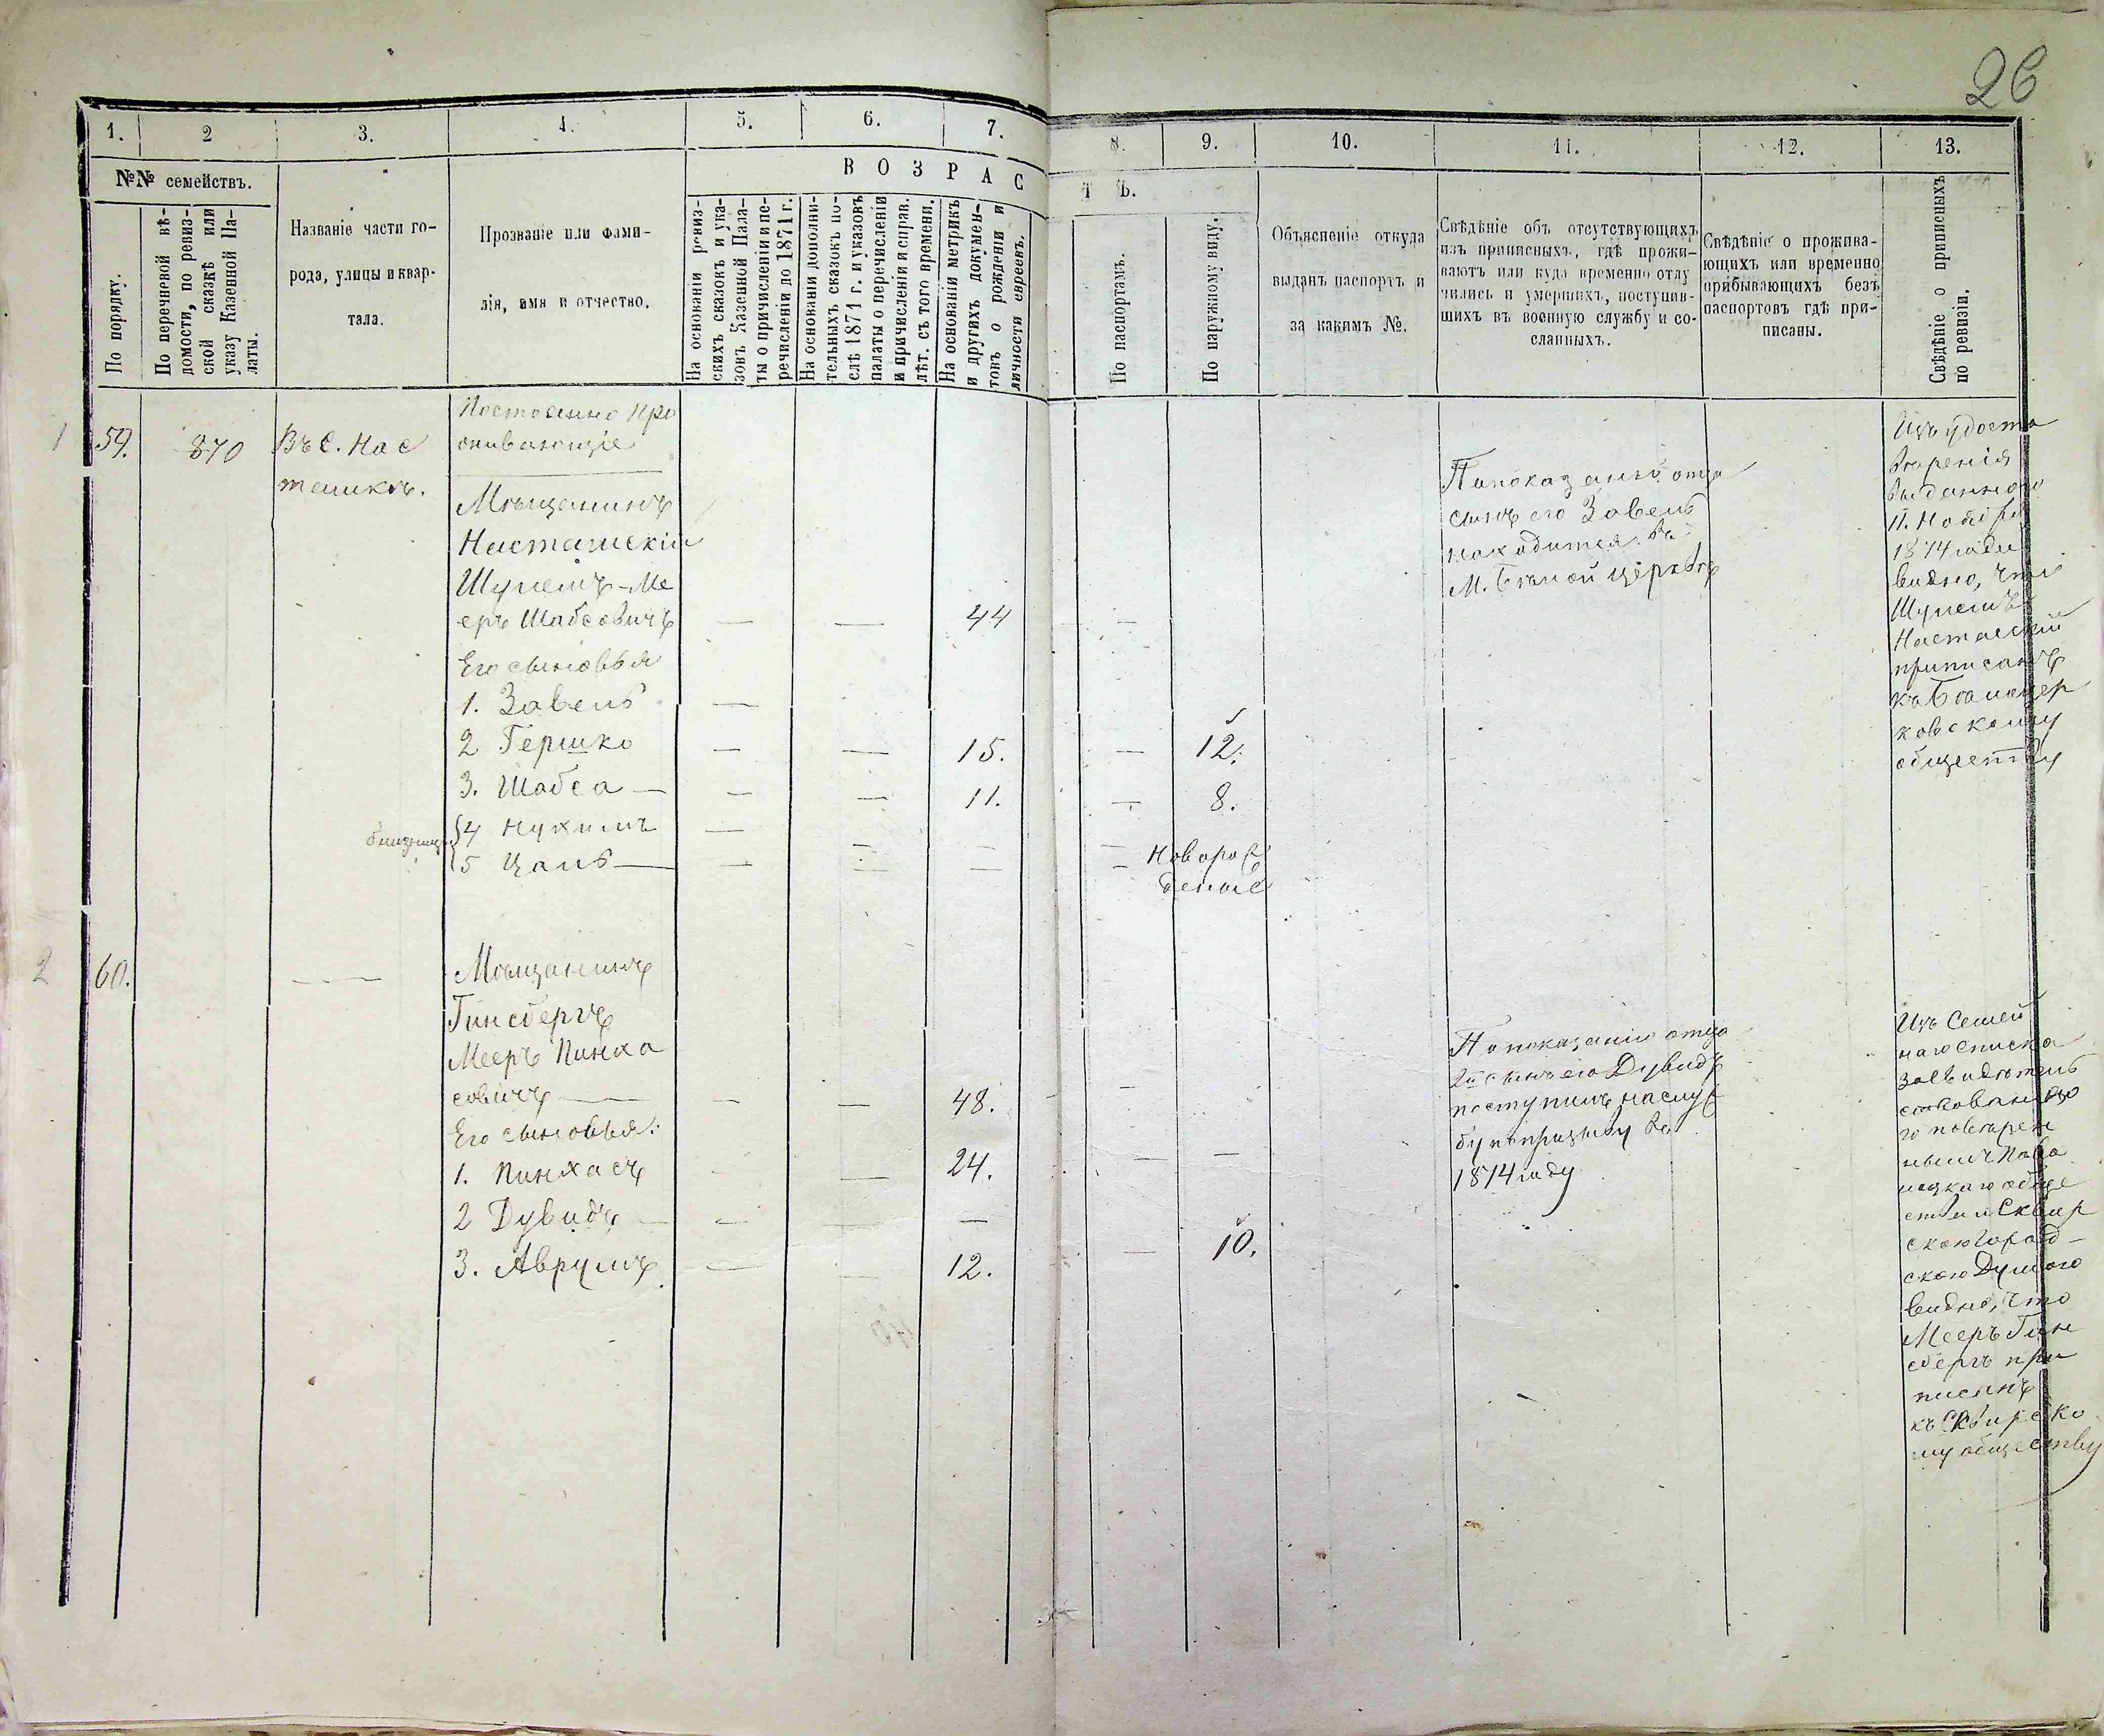 26
1.
2
3.
4.
5.
6.
7.
8.
9.
10.
11.
12.
13.
№№ семействъ.
ВОЗРАС
ТЪ.
По порядку.
По перечневой вѣ-
домости, по ревиз-
ской сказкѣ или
указу Казенной Па-
латы.
Названіе части го-
рода, улицы и квар-
тала.
Прозваніе или фами-
лія, имя и отчество.
На основаніи ревиз-
скихъ сказокъ и ука-
зовъ Казенной Пала-
ты о причисленіи и пе-
речисленіи до 1871 г.
На основаніи дополни-
тельныхъ сказокъ по-
слѣ 1871 г. и указовъ
палаты о перечисленіи
и причисленіи и справ.
лѣт. съ того времени.
На основаніи метрикъ
и другихъ докумен-
товъ о рожденіи и
личности евреевъ.
По паспортамъ.
По наружному виду.
Объясненіе откуда
выданъ паспортъ и
за какимъ №.
Свѣдѣніе объ отсутствующихъ
изъ приписныхъ, гдѣ прожи-
ваютъ или куда временно отлу
чились и умершихъ, поступив-
шихъ въ военную службу и со-
сланныхъ.
Свѣдѣніе о прожива-
ющихъ или временно
прибывающихъ безъ
паспортовъ гдѣ при-
писаны.
Свѣдѣніе о приписныхъ
по ревизіи.
1
59.
870
Въ С. Нас
ташкѣ.
Постоянно про
живающіе
Мѣщанинъ
Насташскій
Шулемъ-Ме
еръ Шабсовичъ — — 44 —
Его сыновья
1. Завель —
2 Гершко — — 15. — 12.
3. Шабса — — — 11. — 8.
близнецы
4 Нухимъ — — — —
5 Цаль — — — — —
Новорож
деные
По показанію отца
сынъ его Завель
находится въ
М. Бѣлой Церквѣ
Изъ удосто
веренія
выданного
11. Ноября
1874 года
видно, что
Шулемъ
Насташскій
приписанъ
къ Бѣлоцер
ковскому
обществу
2
60.
—
Мѣщанинъ
Гинсбергъ
Мееръ Пинха
совичъ — — — 48. —
Его сыновья:
1. Пинхасъ — — 24. — —
2 Дувидъ — — — —
3. Аврумъ — — 12. — 10.
По показанію отца
2й сынъ его Дувидъ
поступилъ на служ
бу по призыву въ
1874 году
Изъ Семей
наго списка
засвидѣтель
ствованна
го поверен
нымъ
обще
ства и Сквир
скою Город-
скою Думою
видно, что
Мееръ Гин
сбергъ при
писанъ
къ Сквирско
му обществу